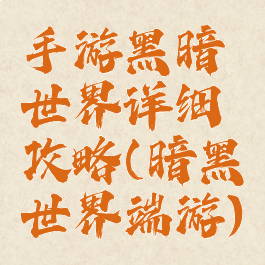 手游黑暗
世界详细
攻略(暗黑
世界端游)